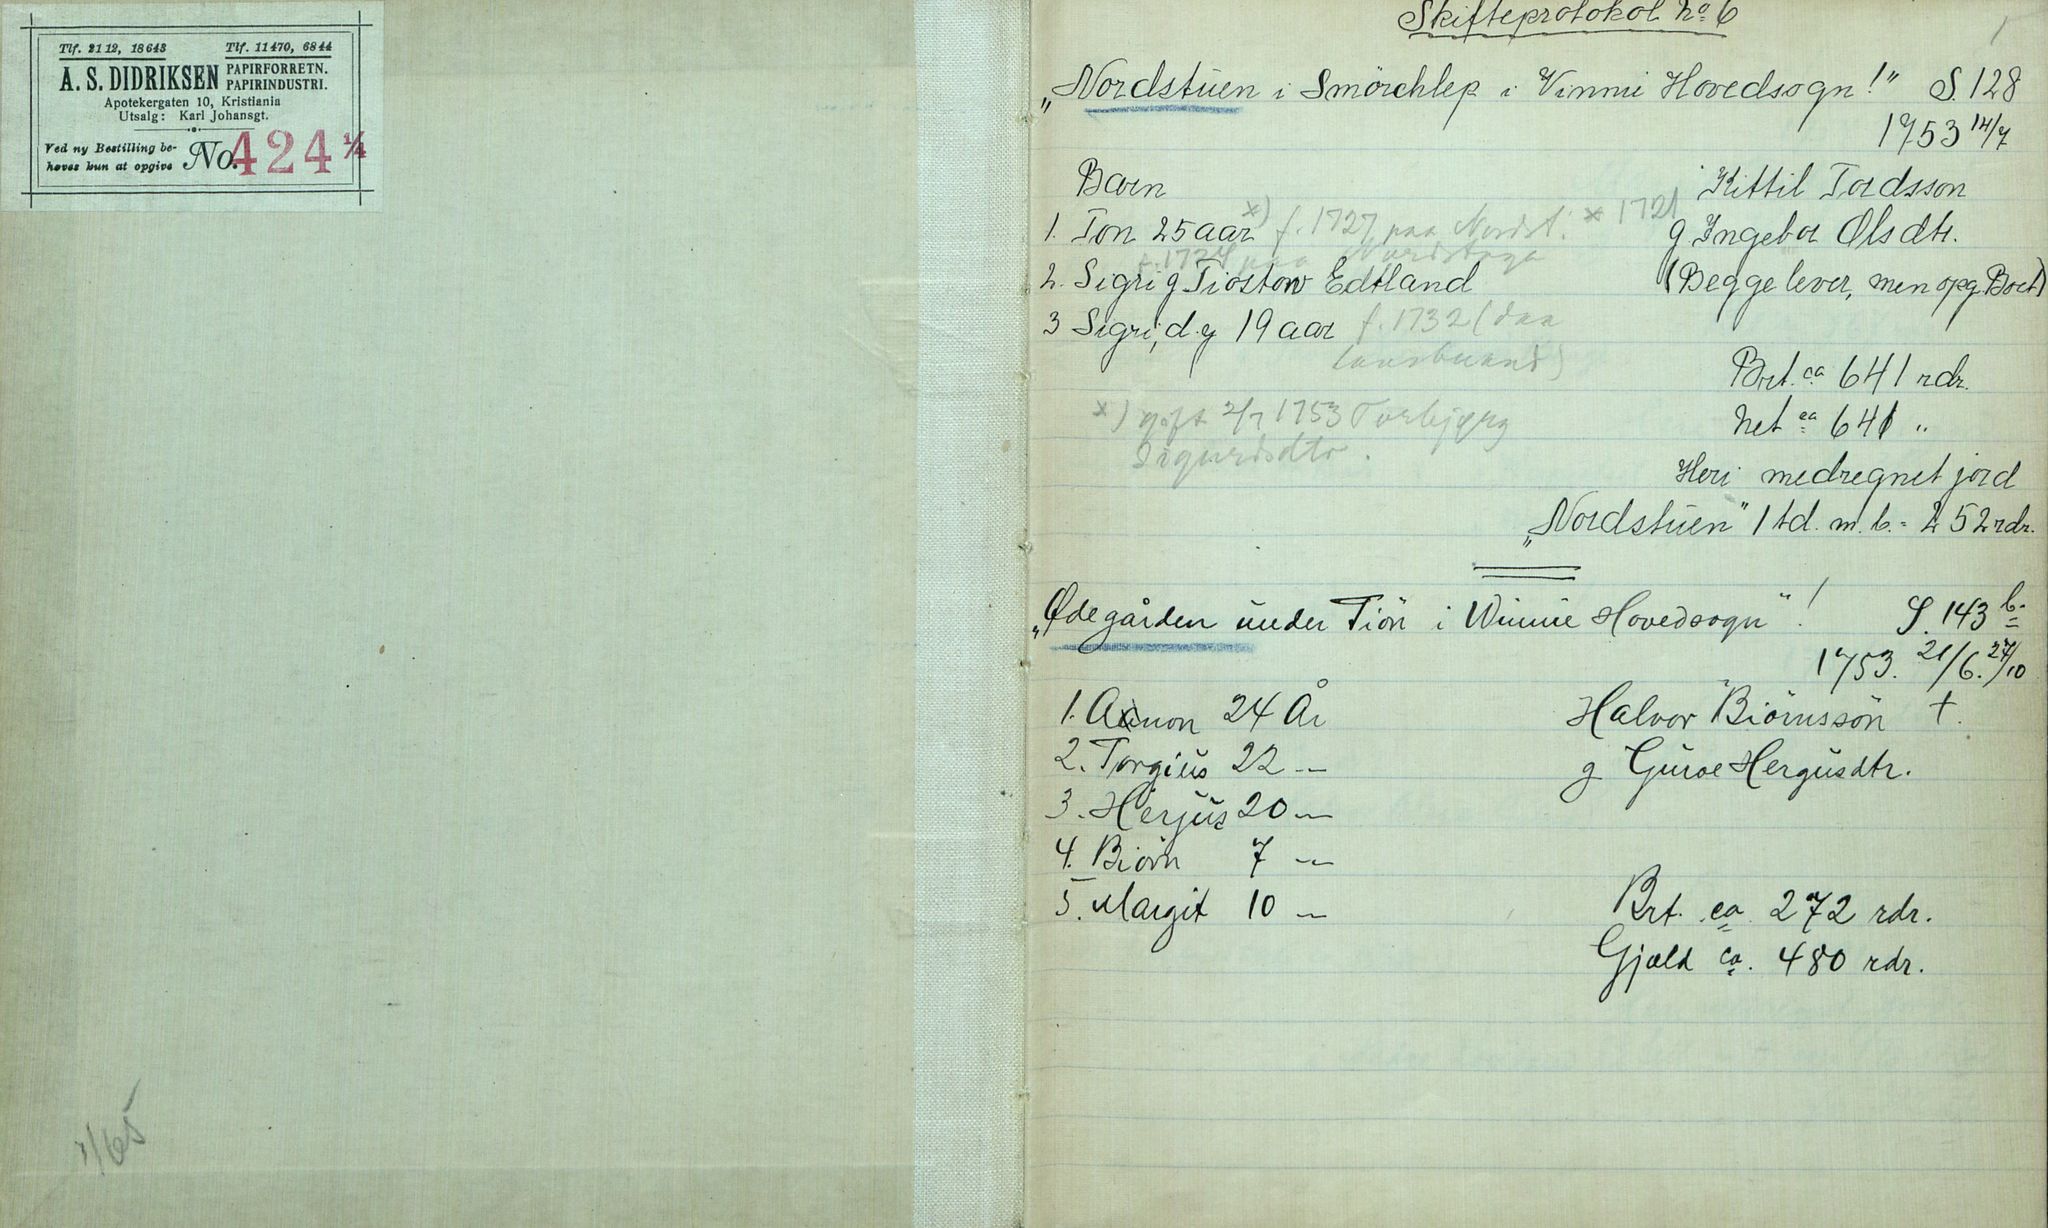 Tlf. 2112, 18643 Tlf. 11470, 6844
A. S. DIDRIKSEN PAPIRFORRETN. PAPIRINDUSTRI.
Apotekergaten 10, Kristiania
Utsalg: Karl Johansgt.
Ved ny Bestilling be-
høves kun at opgive No. 424 1/4
1/65
Skifteprotokol no 6
1
„Nordstuen i Smörchlep i Vinnie Hovedsogn!" S. 128
1753 14/7
Barn Kittil Tordsson
1. Ton 25 aar x) f. 1727 paa Nordst. * 1721 g Ingebor Olsdtr.
f. 1724 paa Nordstoga
2. Sigri g Tiostow Edtland (Begge lever, men opg. Boet)
3 Sigri, d.y 19 aar f. 1732 (daa
Brt. ca 641 rdr.
x) gift 2/7 1753 Torbjørg
Net ca 641 "
Sigurdsdtr.
Heri medregnet jord
„Nordstuen" 1 td. m. b. = 252 rdr.
„Ødegården under Tiön i Winnie Hovedsogn"! S. 143 b.
1753. 21/6. 27/10
1. Aanon 24 År Halvor Biörnssön †.
2. Torgius 22 — g Guroe Hergusdtr.
3. Herjus 20 —
4. Biörn 7 —
5. Margit 10 — Brt. ca 272 rdr.
Gjæld ca. 480 rdr.